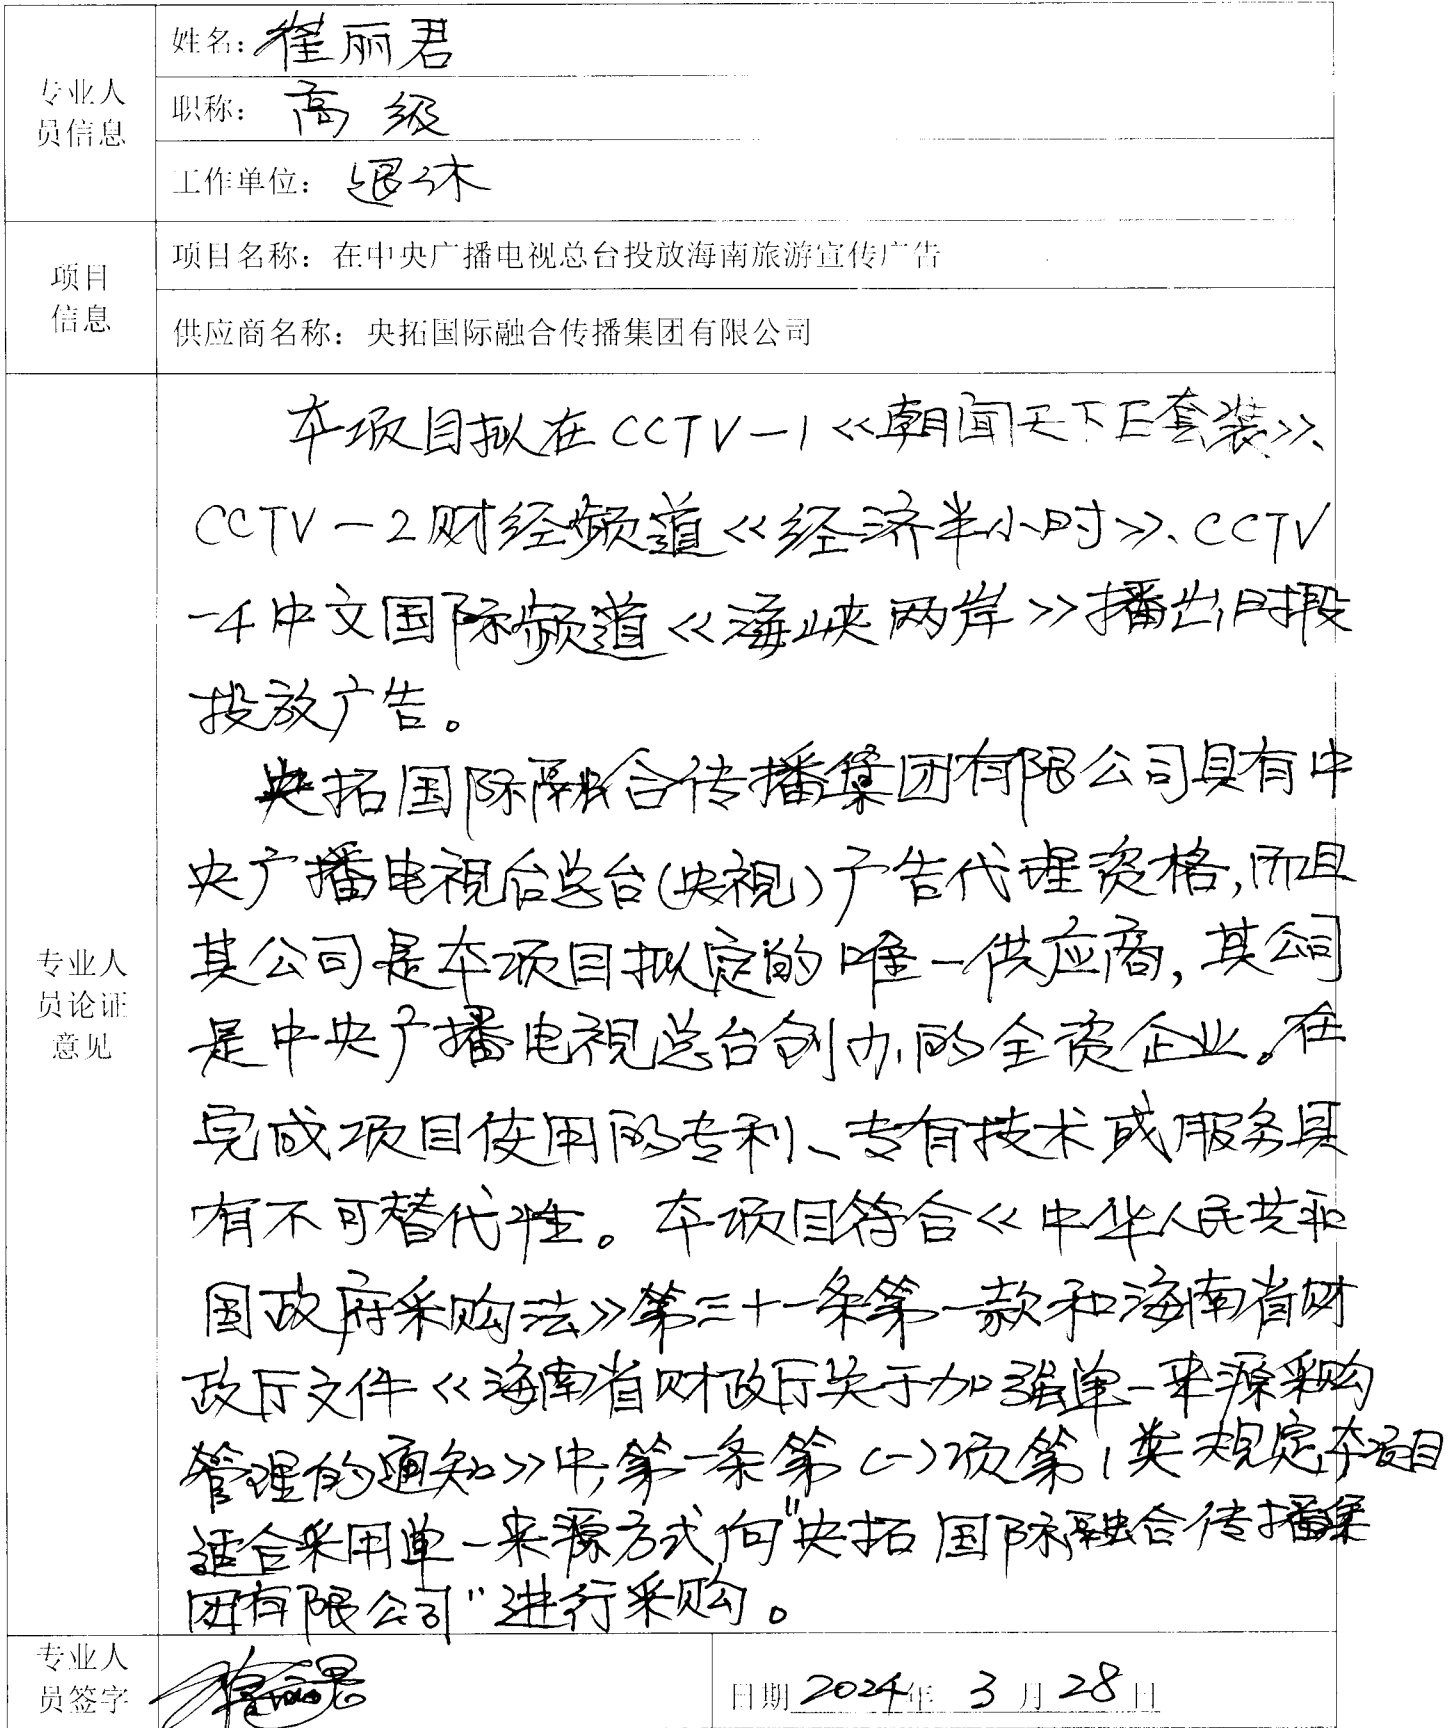 专业人员信息
姓名：崔丽君
职称：高级
工作单位：退休
项目信息
项目名称：在中央广播电视总台投放海南旅游宣传广告
供应商名称：央拓国际融合传播集团有限公司
专业人员论证意见
本项目拟在CCTV-1《朝闻天下E套装》、
CCTV-2财经频道《经济半小时》、CCTV
-4中文国际频道《海峡两岸》播出时段
投放广告。
央拓国际融合传播集团有限公司具有中
央广播电视台总台(央视)广告代理资格,而且
其公司是本项目拟定的唯一供应商,其公司
是中央广播电视总台创办的全资企业。在
完成项目使用的专利、专有技术或服务具
有不可替代性。本项目符合《中华人民共和
国政府采购法》第三十一条第一款和海南省财
政厅文件《海南省财政厅关于加强单一来源采购
管理的通知》中,第一条第(一)项第1类规定,本项目
适合采用单一来源方式向"央拓国际融合传播集
团有限公司"进行采购。
专业人员签字 崔丽君
日期 2024年 3 月 28 日